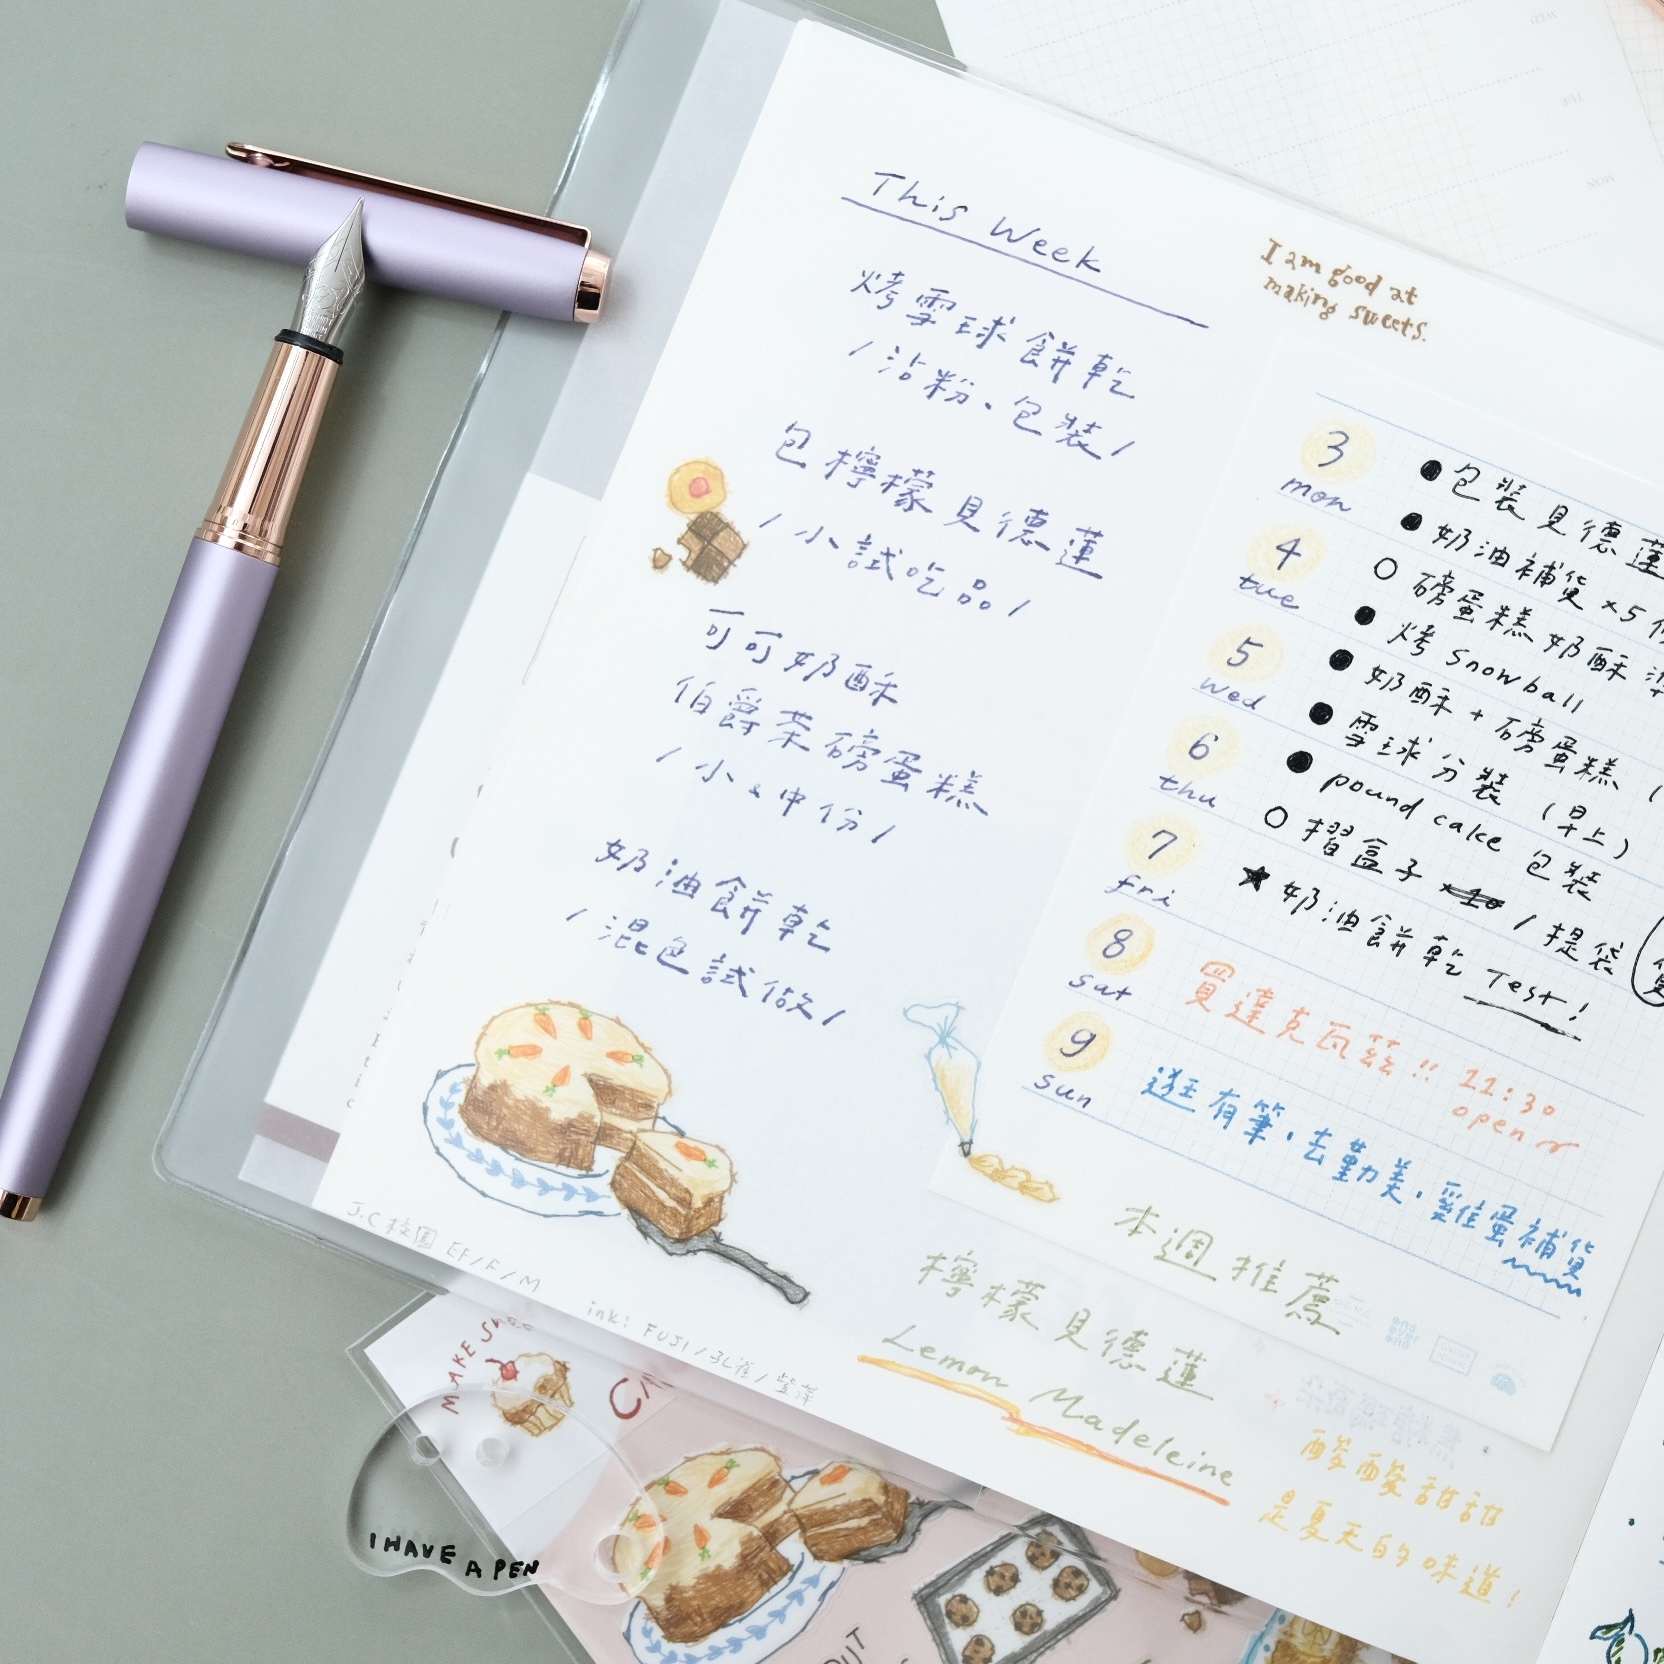 This Week
烤雪球餅乾
/沾粉、包裝/
包檸檬貝德蓮
/小試吃品/
可可奶酥
伯爵茶磅蛋糕
/小、中份/
奶油餅乾
/混色試做/
I am good at
making sweets.
3
mon
4
tue
5
wed
6
thu
7
fri
8
sat
9
sun
●包裝貝德蓮
●奶油補貨 x5
○磅蛋糕奶酥
●烤 snowball
●奶酥+磅蛋糕
●雪球分裝 (早上)
●pound cake 包裝
○摺盒子 /提袋
★奶油餅乾 Test!
買達克瓦茲!! 11:30
open
逛有筆、去勤美、雞蛋補貨
本週推薦
檸檬貝德蓮
Lemon Madeleine
酸酸甜甜
是夏天的味道!
J.C校園 EF/F/M
ink: FUJI/孔雀/紫藤
I HAVE A PEN